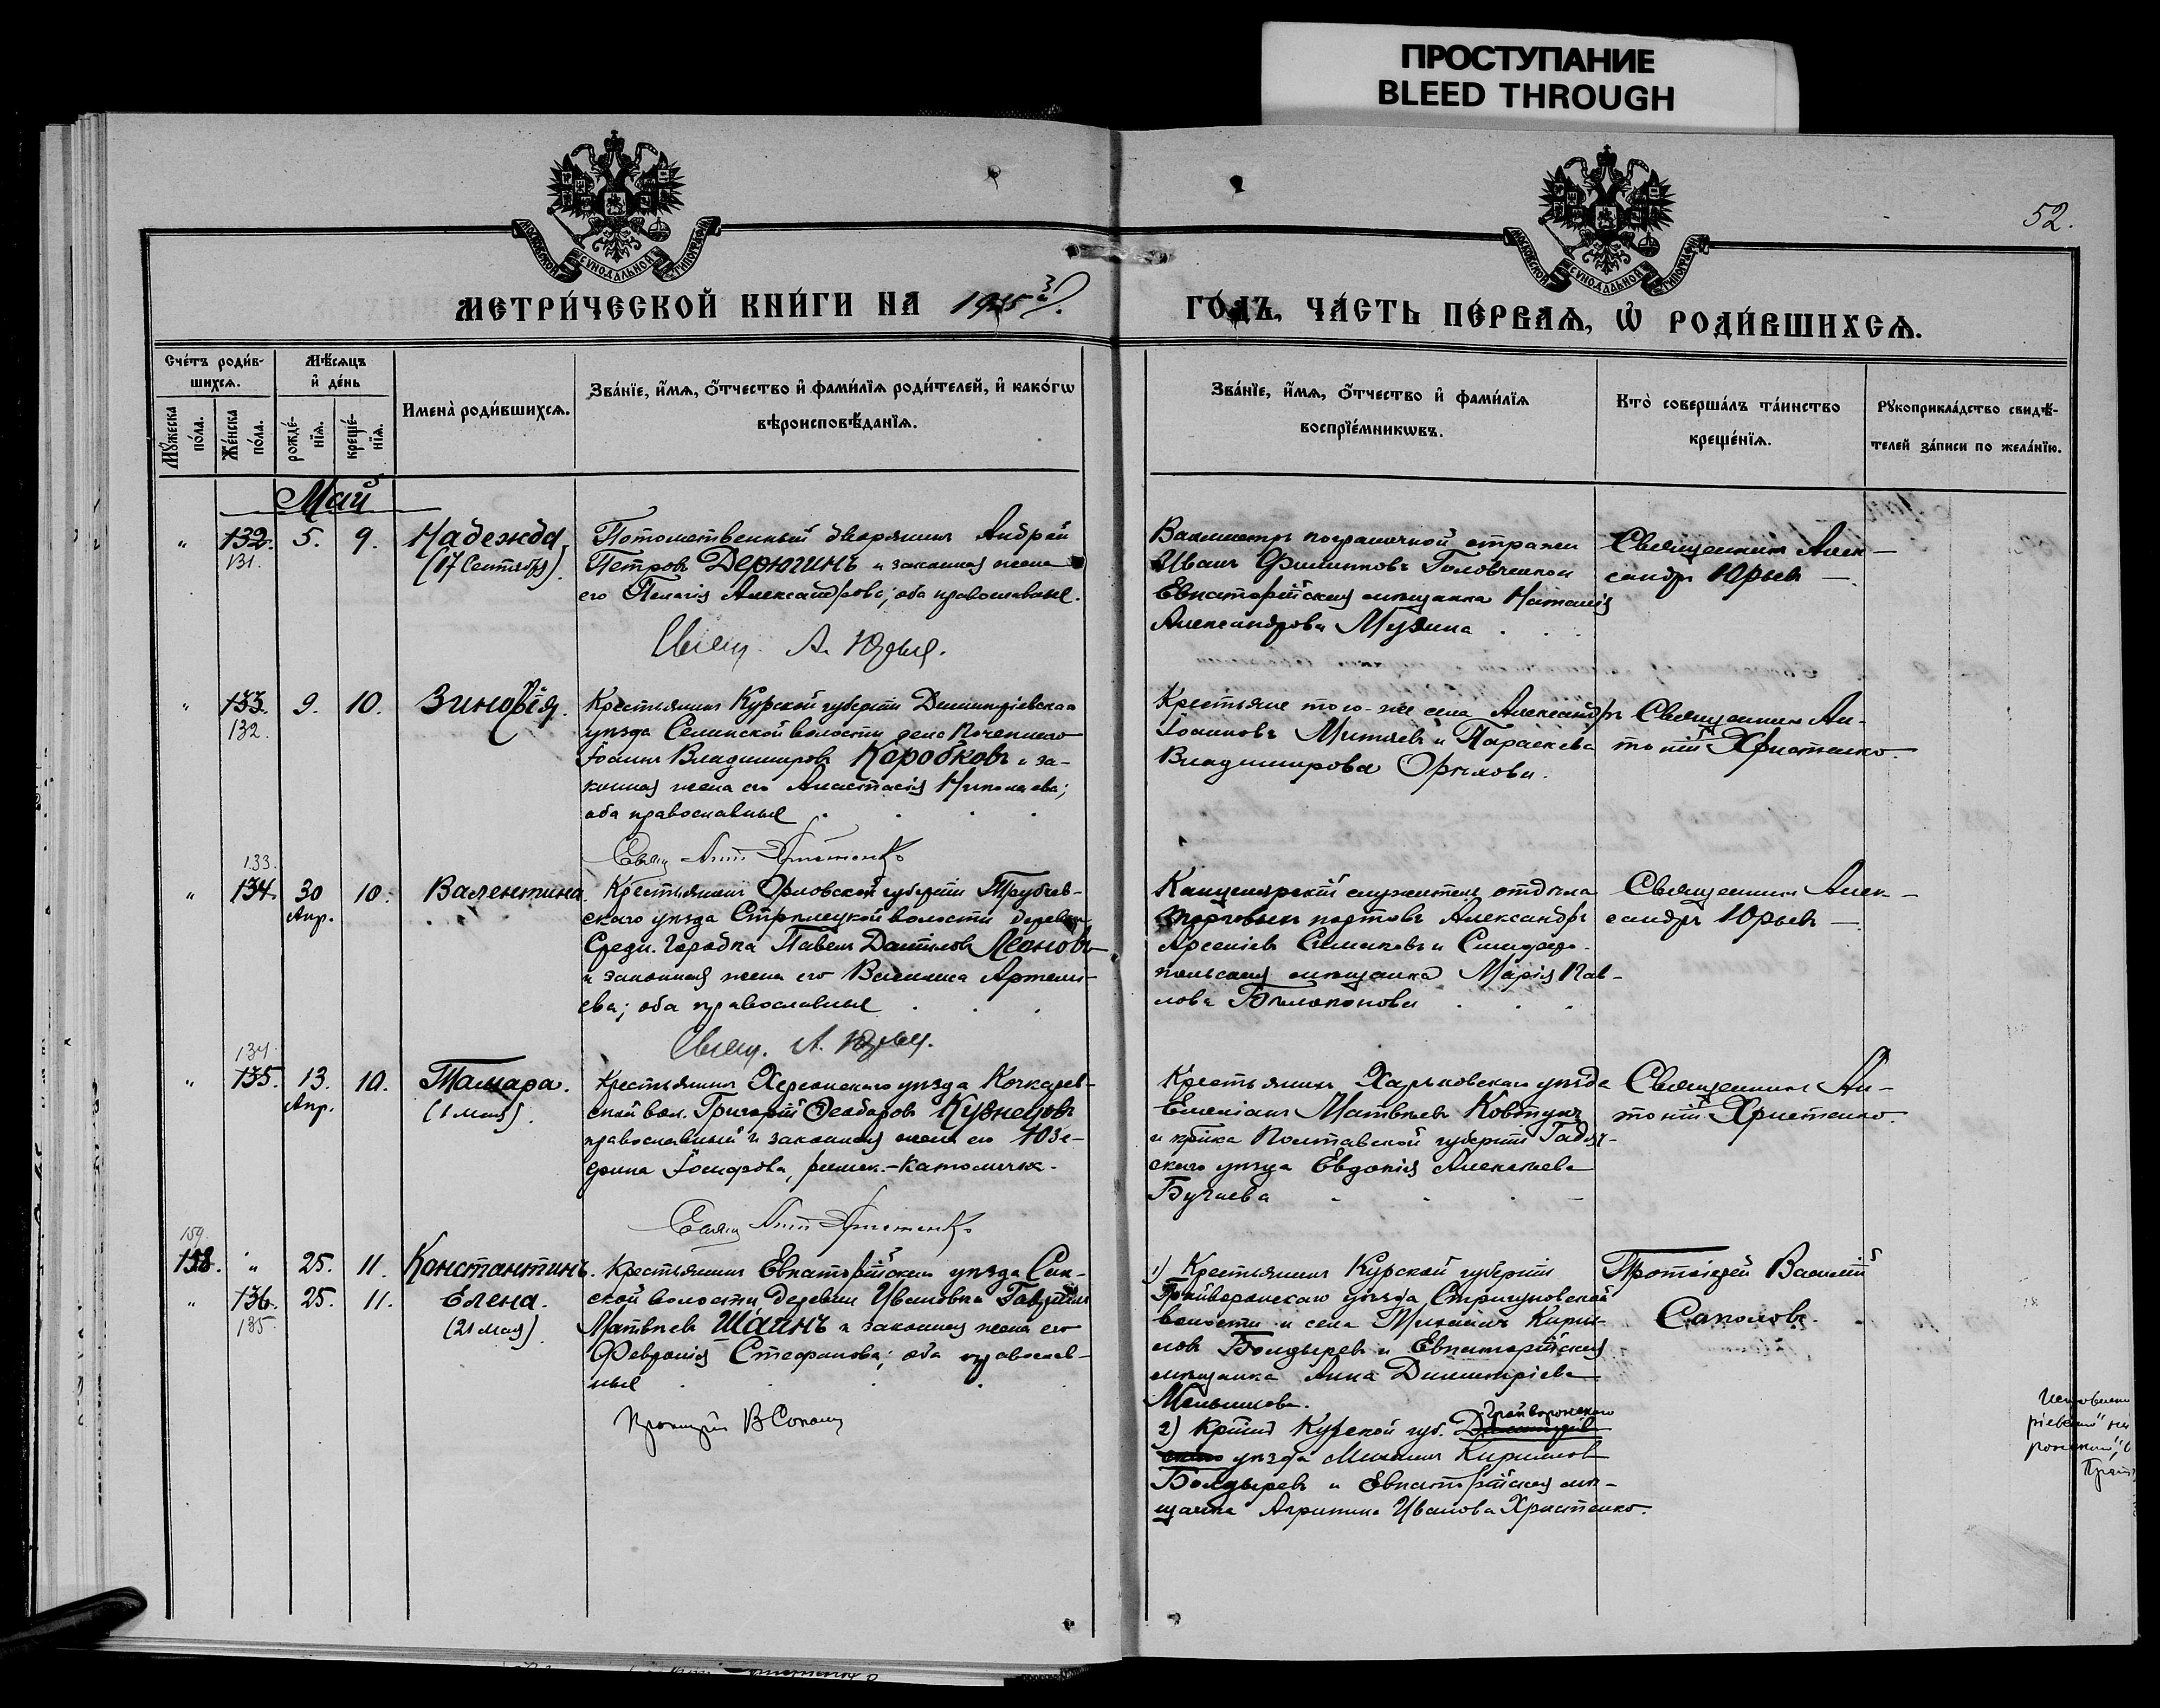 ПРОСТУПАНИЕ
BLEED THROUGH
МОСКОВСКОЙ СѴНОДАЛЬНОЙ ТИПОГРАФІИ
МОСКОВСКОЙ СѴНОДАЛЬНОЙ ТИПОГРАФІИ
52.
МЕТРИ́ЧЕСКОЙ КНИ́ГИ НА 1915й
ГО́ДЪ, ЧА́СТЬ ПЕ́РВАѦ, Ѡ РОДИ́ВШИХСѦ.
Сче́тъ роди́в-
шихсѧ.
Мꙋ́жеска
по́ла.
Же́нска
по́ла.
Мѣ́сѧцъ
и де́нь
рожде́-
нїѧ.
креще́-
нїѧ.
Имена̀ роди́вшихсѧ.
Зва́нїе, и́мѧ, ѻ́тчество и фами́лїѧ роди́телей, и како́гѡ
вѣроисповѣ́данїѧ.
Зва́нїе, и́мѧ, ѻ́тчество и фами́лїѧ
воспрїе́мникѡвъ.
Кто̀ соверша́лъ та́инство
креще́нїѧ.
Рꙋкоприкла́дство свидѣ́-
телей за́писи по жела́нїю.
Май
" 132. 5. 9. Надежда
131. (17 Сентября).
Потомственный дворянинъ Андрей
Петровъ Дерюгинъ и законная жена
его Пелагія Александрова; оба православные.
Свящ. А. Юрьев.
Вахмистръ пограничной стражи
Иванъ Филипповъ Головченко и
Евпаторійская мѣщанка Наталія
Александрова Музина
Священникъ Алек-
сандръ Юрьевъ
" 133. 9. 10. Зиновія.
132.
Крестьянинъ Курской губерніи Димитріевскаго
уѣзда Селинской волости села Поченнаго
Іоаннъ Владимировъ Коробковъ и за-
конная жена его Анастасія Николаева;
оба православные
Свящ Ант Христенко
Крестьяне того-же села Александръ
Іоанновъ Митяевъ и Параскева
Владимирова Орѣхова.
Священникъ Ан-
тоній Христенко.
133.
" 134. 30 10. Валентина.
Апр.
Крестьянинъ Орловской губерніи Трубчев-
скаго уѣзда Стрѣлецкой волости деревни
Средн. Городка Павелъ Даніиловъ Леоновъ
и законная жена его Василиса Артемі-
ева; оба православные
Свящ. А. Юрьев.
Канцелярскій служитель отдѣла
торговыхъ портовъ Александръ
Арсеніевъ Симаковъ и Симферо-
польская мѣщанка Марія Пав-
лова Бѣлоконова
Священникъ Алек-
сандръ Юрьевъ
134.
" 135. 13. 10. Тамара.
Апр. (1 мая).
Крестьянинъ Херсонскаго уѣзда Качкарев-
ской вол. Григорій Ѳеодоровъ Кузнецовъ
православный и законная жена его Юзе-
фина Іосифова, римск.-католичка.
Свящ Ант Христенко
Крестьянинъ Харьковскаго уѣзда
Емеліанъ Матвѣевъ Ковтунъ
и кр-ка Полтавской губерніи Гадяч-
скаго уѣзда Евдокія Алексѣева
Бугаева
Священникъ Ан-
тоній Христенко.
159.
158. " 25. 11. Константинъ.
" 136. 25. 11. Елена.
135. (21 мая).
Крестьянинъ Евпаторійскаго уѣзда Сак-
ской волости деревни Ивановка Гавріилъ
Матвѣевъ Шаинъ и законная жена его
Февронія Стефанова; оба православ-
ные
Протоіерей В Соколов
1) Крестьянинъ Курской губерніи
Грайворонскаго уѣзда Стригуновской
волости и села Михаилъ Кирил-
ловъ Болдыревъ и Евпаторійская
мѣщанка Анна Димитріева
Меньшикова.
Грайворонскаго
2) Кр-нинъ Курской губ. Димитріев-
скаго уѣзда Михаилъ Кирилловъ
Болдыревъ и Евпаторійская мѣ-
щанка Агриппина Иванова Христенко.
Протоіерей Василій
Соколовъ.